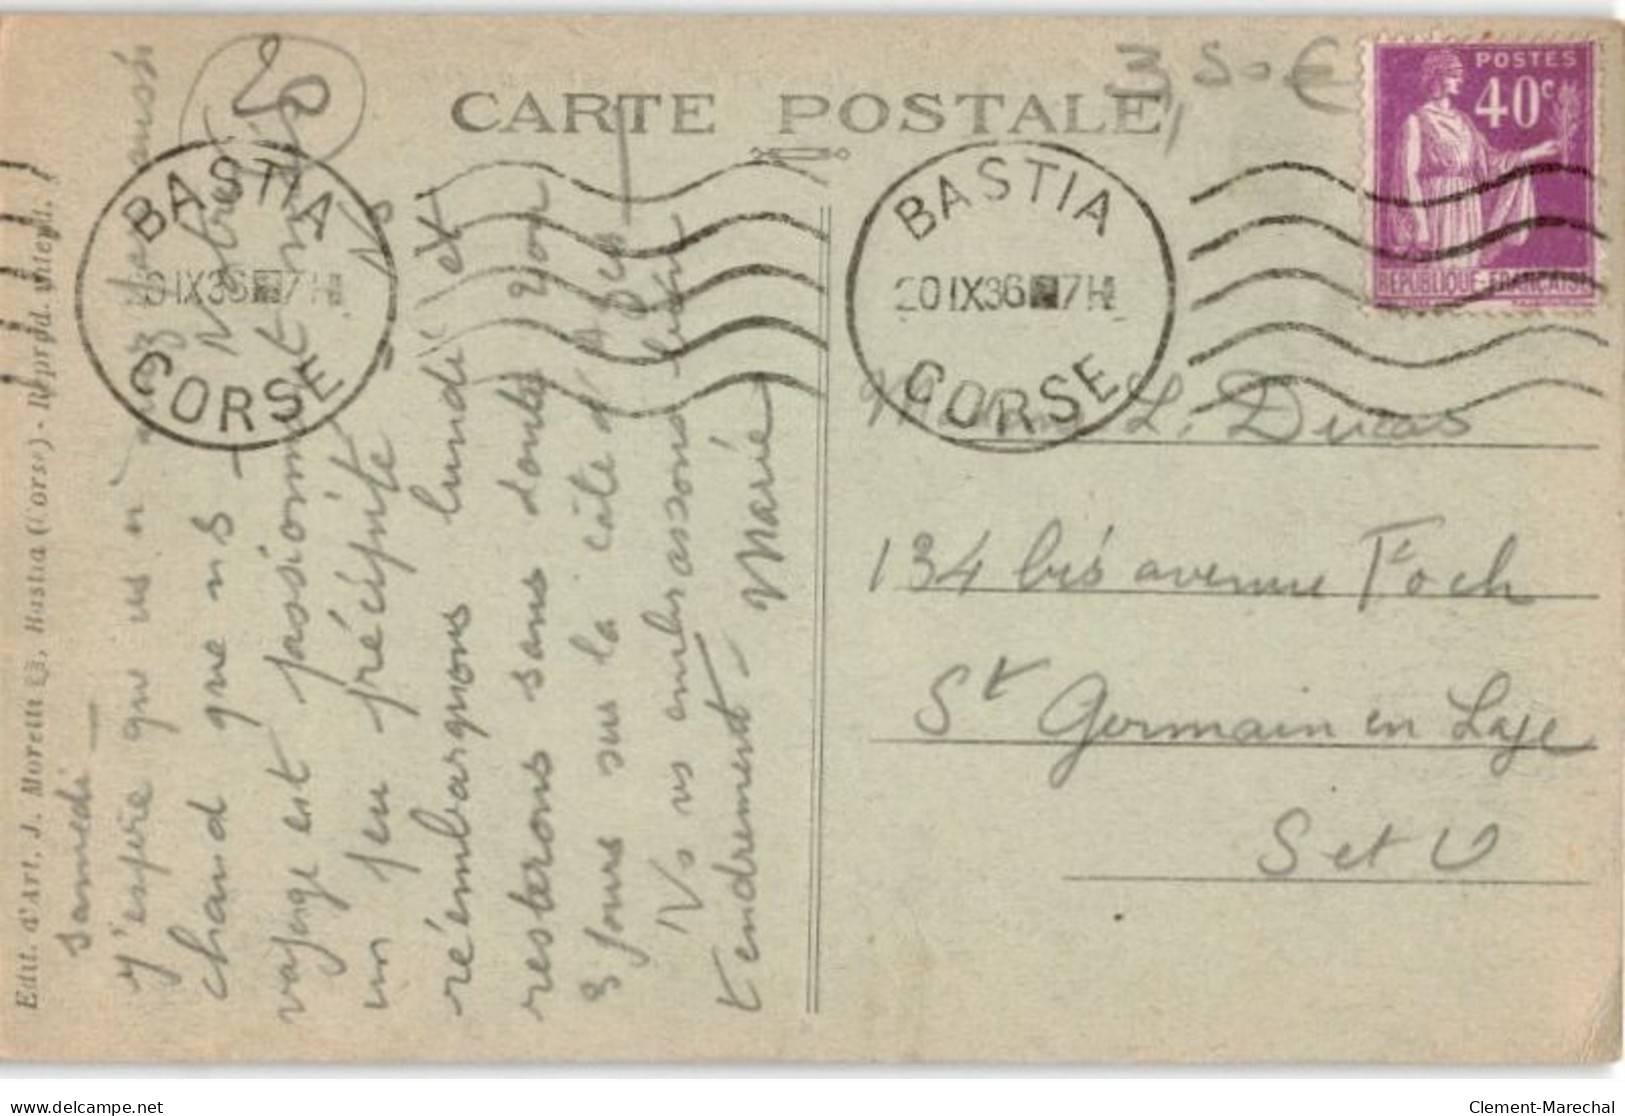 20
CARTE POSTALE
3,50 €
POSTES
40c
REPUBLIQUE-FRANÇAISE
BASTIA
20 IX 36 7H
CORSE
BASTIA
20 IX 36 7H
CORSE
L. Ducas
134 bis avenue Foch
St Germain en Laye
S et O
samedi
J'espère que vs n' pas aussi
chaud que ns — Notre
voyage est passionnant mais
un peu précipité — Ns
réembarquons lundi et
resterons sans doute
3 jours sur la côte d'Azur
Ns vs embrassons bien
tendrement — Marie
Edit. d'Art. J. Moretti, Bastia (Corse) - Reprod. interd.
delcampe.net
Clement-Marechal